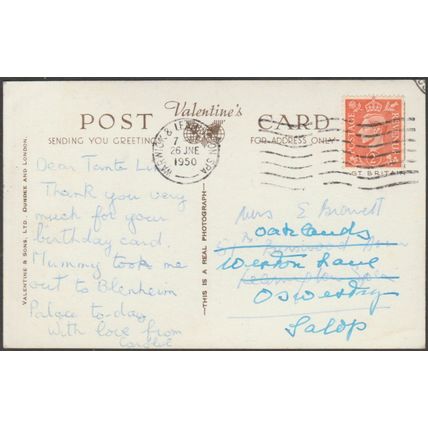 POST
Valentine's
CARD
SENDING YOU GREETINGS
FOR ADDRESS ONLY
WARWICK & LEAMINGTON SPA
7
26 JNE
1950
POSTAGE
REVENUE
GT BRITAIN
VALENTINE & SONS, LTD. DUNDEE AND LONDON.
—THIS IS A REAL PHOTOGRAPH—
Dear Tante
Thank you very
much for your
birthday card.
Mummy took me
out to Blenheim
Palace to-day
With love from
Mrs E
Oaklands
Weston Lane
Oswestry
Salop